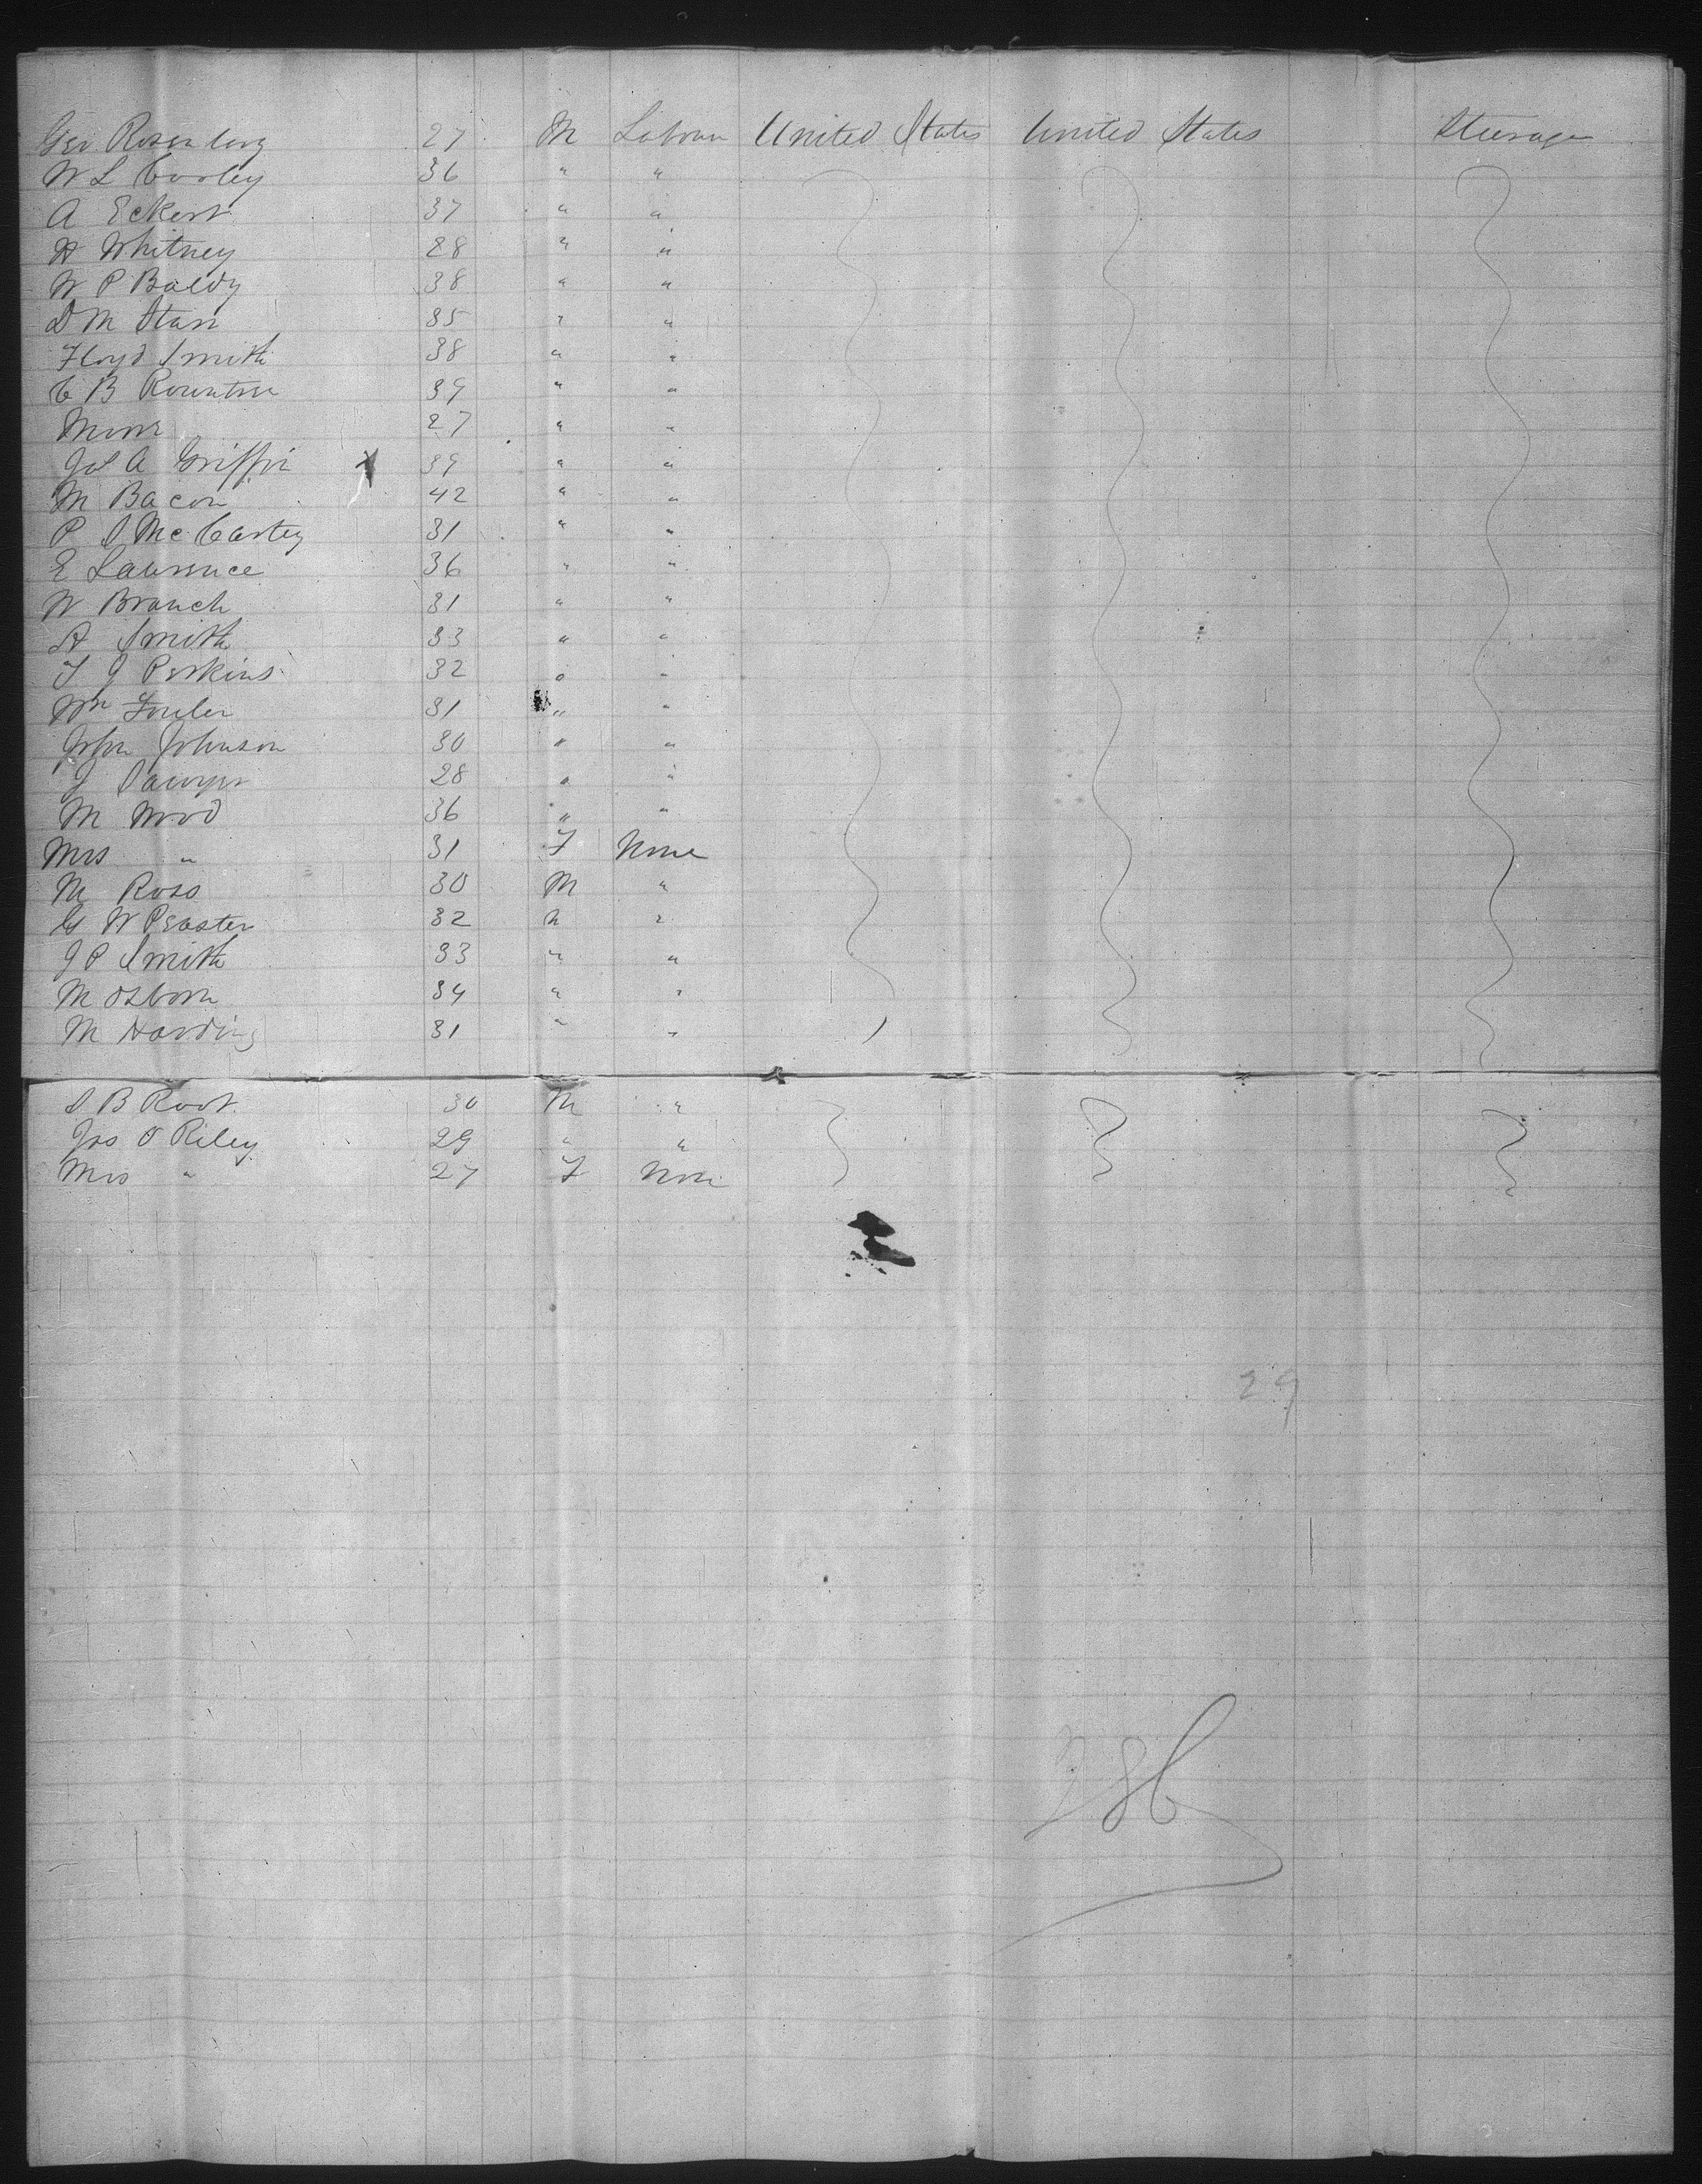 Geo Rosenberg 27 M Laborer United States United States Steerage
W L Corley 36 " "
A Eckert 37 " "
H Whitney 28 " "
W P Baldy 38 " "
D M Starr 35 " "
Floyd Smith 38 " "
C B Rountree 39 " "
27 " "
Jos A Griffin X 39 " "
M Bacon 42 " "
P S McCartey 31 " "
E Lawrence 36 " "
W Branch 31 " "
A Smith 33 " "
T J Perkins 32 " "
Wm Fowler 31 " "
John Johnson 30 " "
J Sawyer 28 " "
M Wood 36 " "
Mrs " 31 F None
M Ross 30 M "
G W Peaster 32 " "
J P Smith 33 " "
M Osborn 34 " "
M Harding 31 " "
S B Root 30 M "
Jas O Riley 29 " "
Mrs " 27 F None
29
386